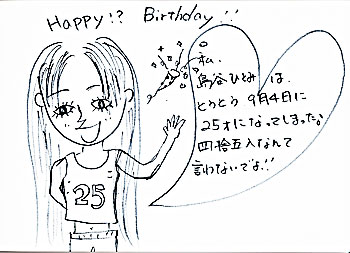 Happy!? Birthday!!
私、
島谷ひとみ は、
とうとう 9月4日に
25才になってしまったな。
四捨五入なんて
言わないでよ!!
25